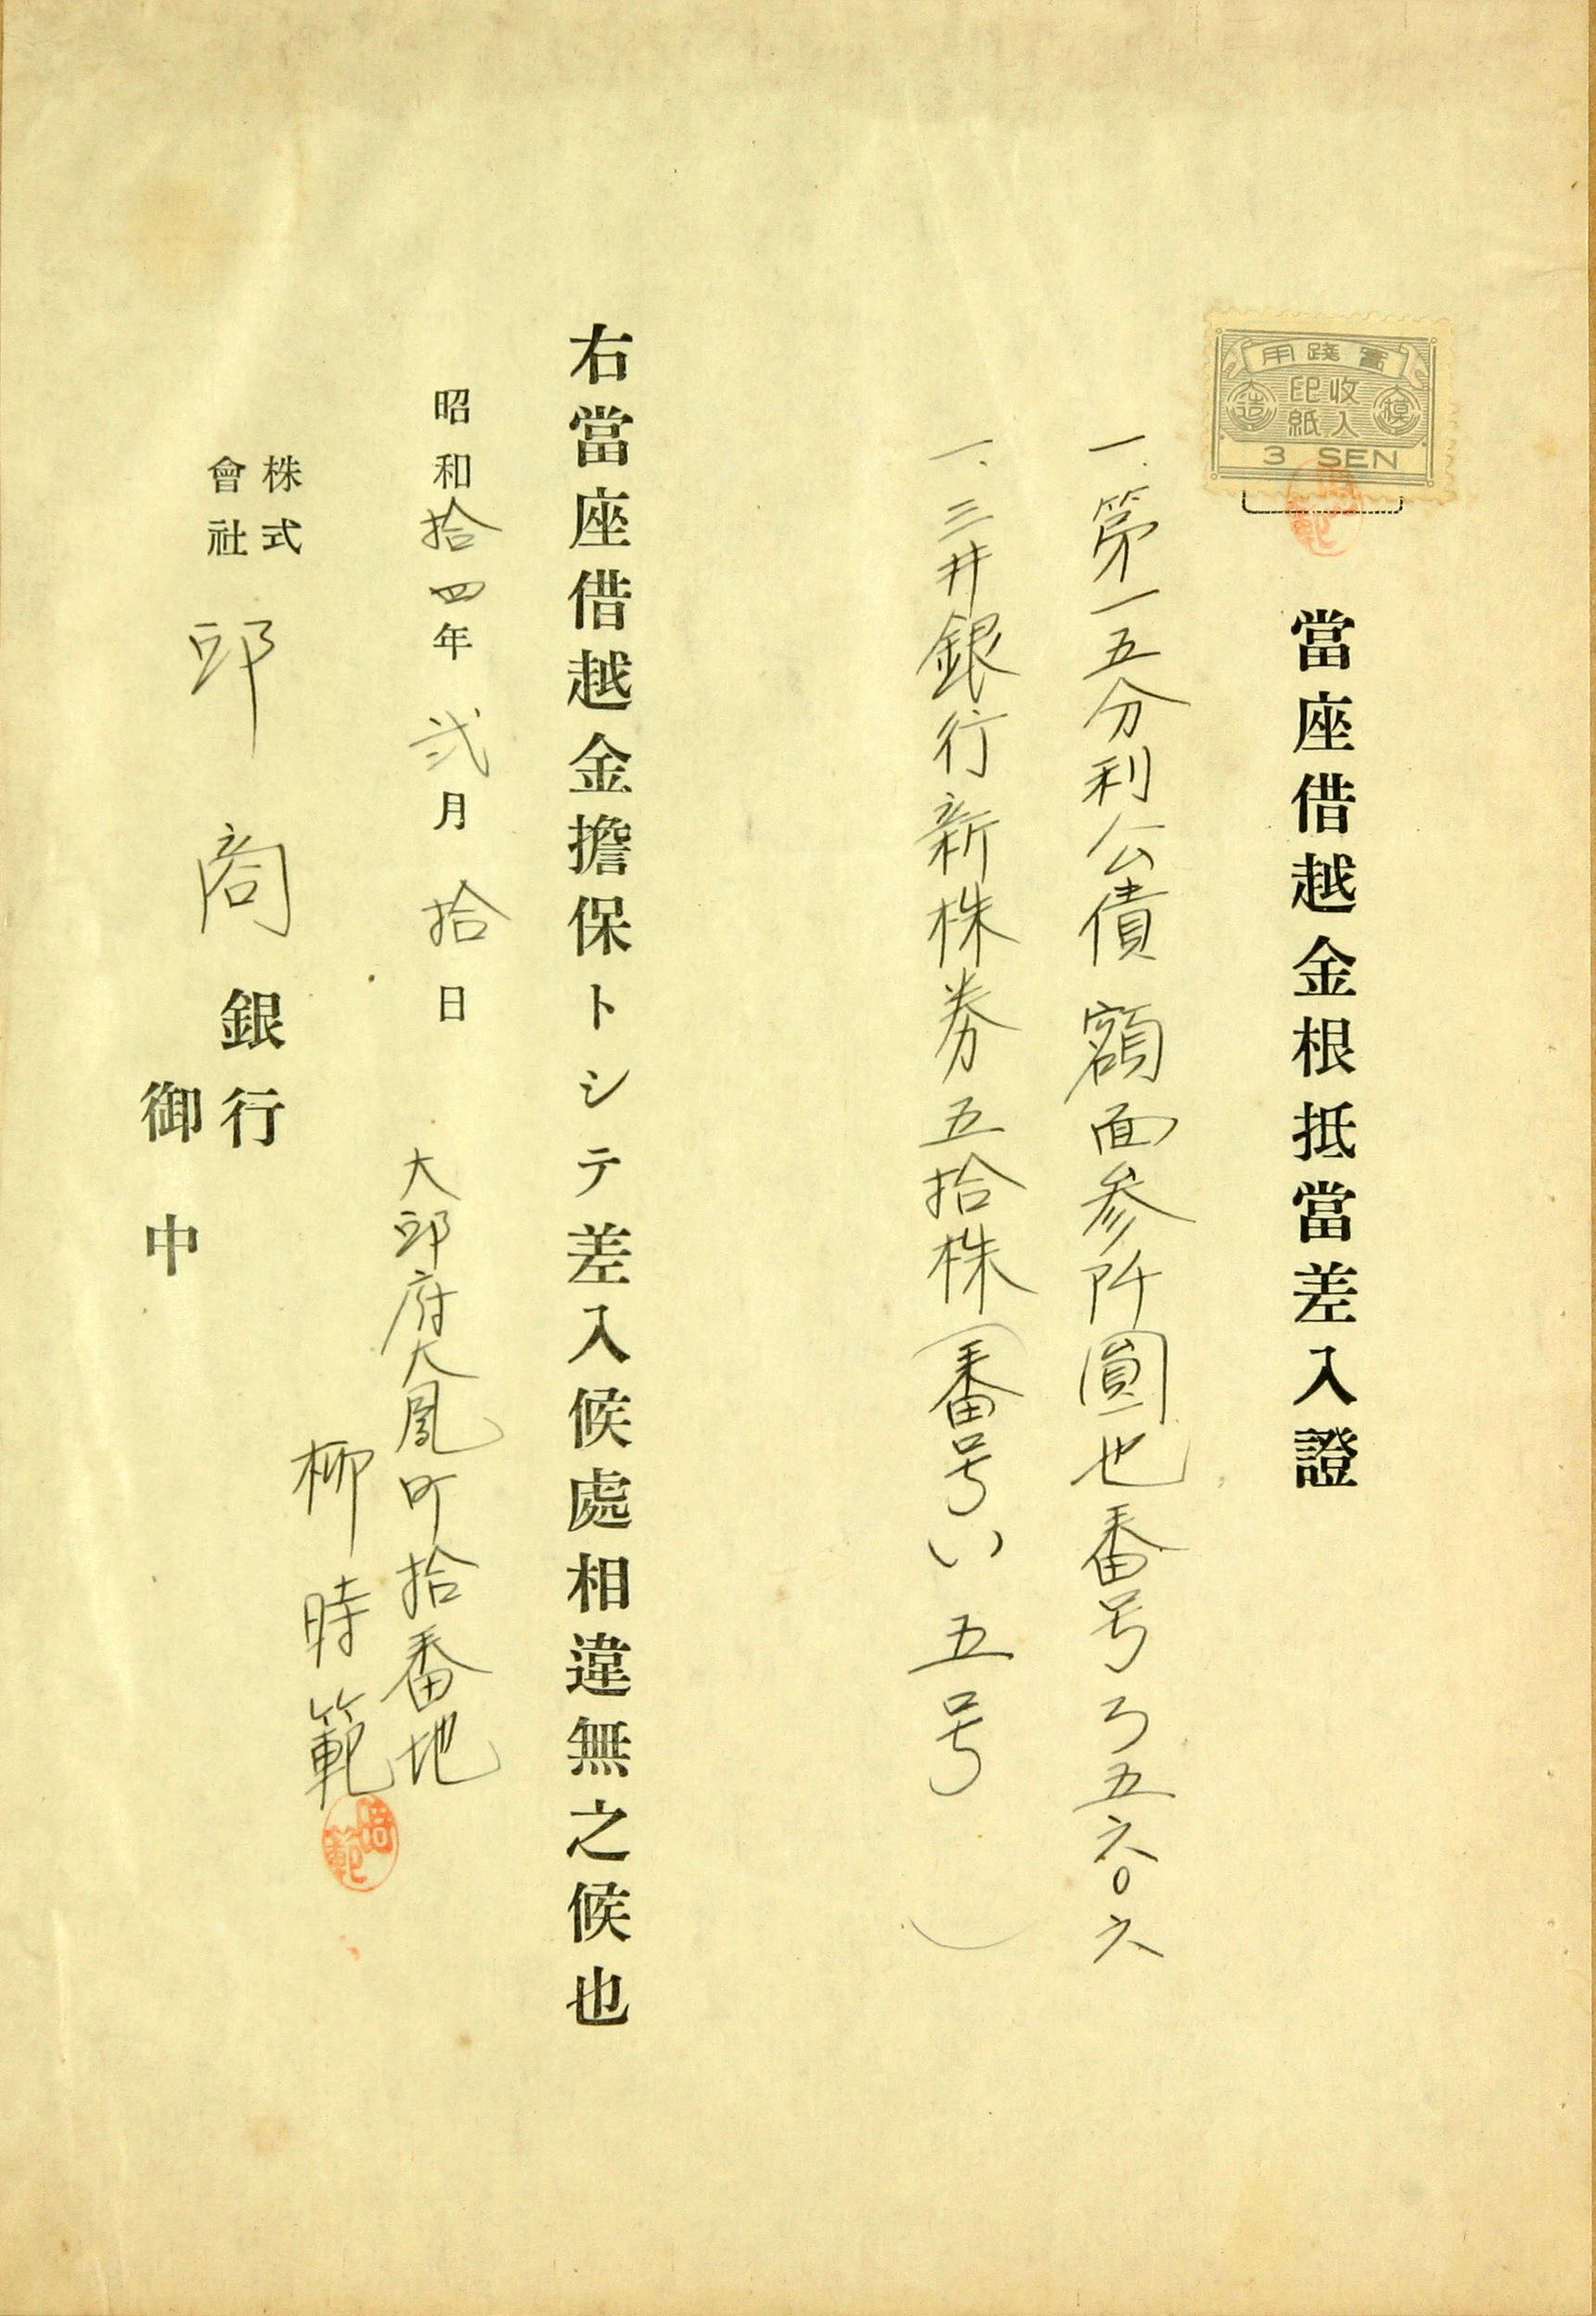 實踐用
模造
收入
印紙
3 SEN
當座借越金根抵當差入證
一、第一五分利公債 額面参阡圓也 番号ろ五六〇六
一、三井銀行新株券五拾株(番号い五号)
右當座借越金擔保トシテ差入候處相違無之候也
昭和拾四年 弐月 拾日
大邱府大鳳町拾番地
柳時範
時範
株式
會社 邱商銀行
御中